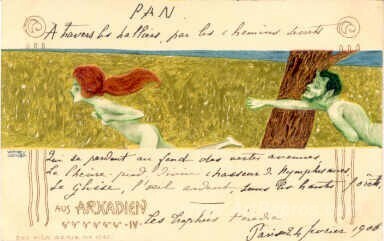 PAN
A travers les halliers, par les chemins secrets
Qui se perdent au fond des vertes avenues,
Le Chèvre-pied, divin chasseur de Nymphes nues,
Se glisse, l'œil ardent, sous les hautes forêts
AUS ARKADIEN
IV.
Les Trophées Hérédia
Paris 24 février 1900